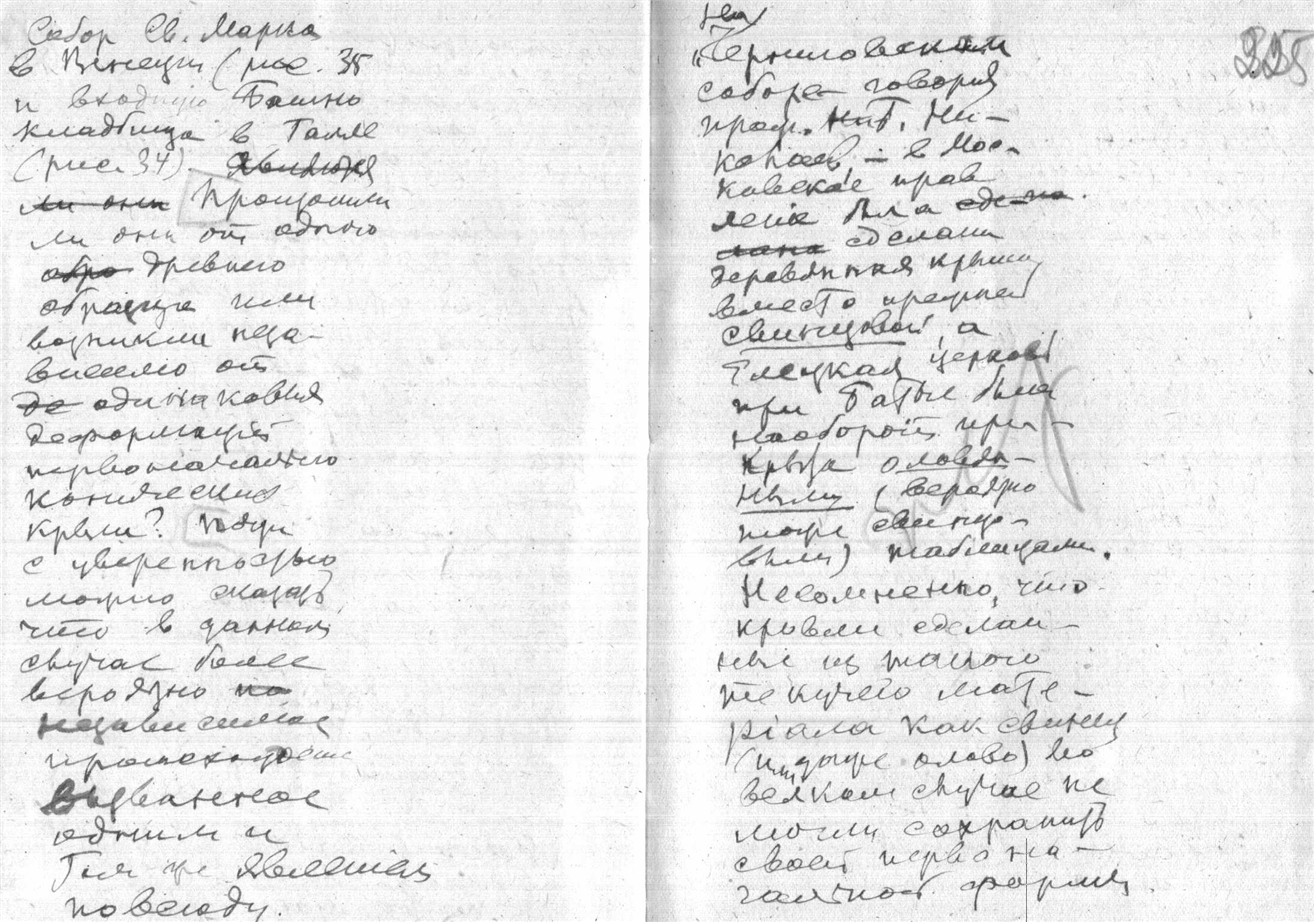 Собор Св. Марка
в Венеции (рис. 35
и входную Башню
кладбища в Галле
(рис. 34) Явились
ли они Произошли
ли они от одного
обра древнего
образца или
возникли неза-
висимо от
де одинаковыя
деформаций
первоначально
конических
крыш?
с уверенностью
можно сказать
что в данном
случае более
вероятно по
независимое
происхождение
вызванное
одним и
Тем же явлением
повсюду.
На
"Черниговском
соборе говорит
проф. Ник. Ни-
колаев, – в Мос-
ковское прав
леніе была сде
лана сделана
деревянная крыша
вместо прежней
свинцовой а
Елецкая церковь
при Батые была
наоборот при-
крыта оловян-
ными (вероятно
тоже свинцо-
выми) таблицами.
Несомненно, что
кровли сделан-
ные из такого
текучего мате-
ріала как свинец
(и даже олово) во
всяком случае не
могли сохранить
своей первона-
чальной формы
225